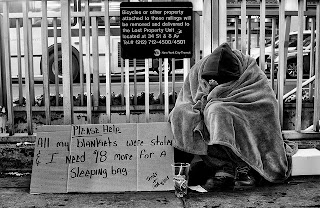 Bicycles or other property
attached to these railings will
be removed and delivered to
the Lost Property Unit
located at 34 St & 8 Av
Tel# (212) 712-4500/4501
New York City Transit
PLEASE HELP
All my blankets were stolen
& I need 98 more for a
sleeping bag